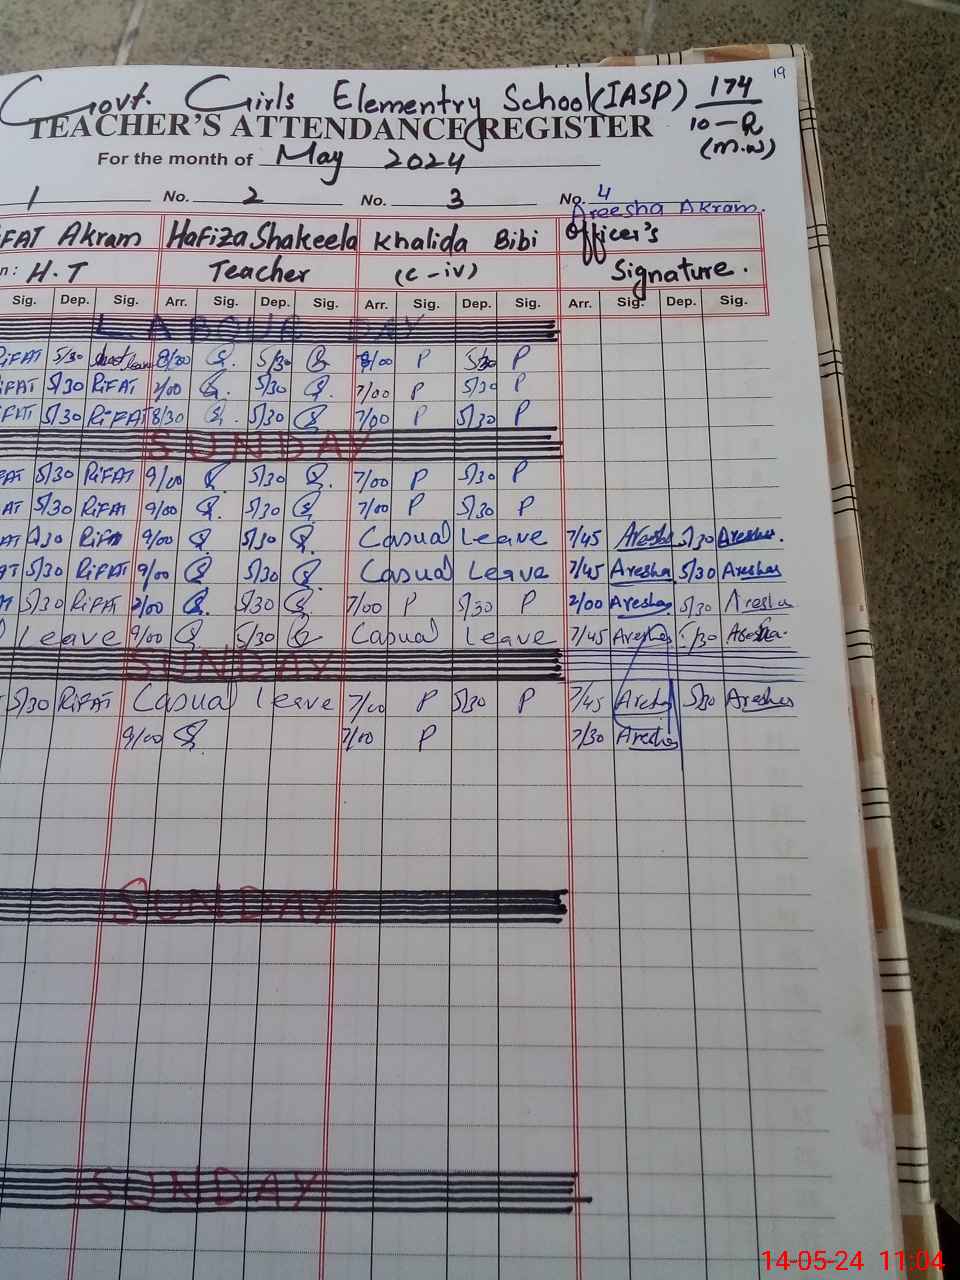 19
Govt. Girls Elementry School (IASP) 174
10-R
TEACHER'S ATTENDANCE REGISTER
(M.N)
For the month of May 2024
1 No. 2 No. 3 No. 4
Areesha Akram.
FAT Akram Hafiza Shakeela Khalida Bibi Officer's
n: H.T Teacher (C-iv) Signature.
Sig. Dep. Sig. Arr. Sig. Dep. Sig. Arr. Sig. Dep. Sig. Arr. Sig. Dep. Sig.
LABOUR DAY
RiFAT 5/30 8/00 5/30 8/00 P 5/30 P
FAT 5/30 RiFAT 5/30 7/00 P 5/30 P
5/30 RiFAT 8/30 5/30 7/00 P 5/30 P
SUNDAY
FAT 5/30 RiFAT 9/00 5/30 7/00 P 5/30 P
AT 5/30 RiFAT 9/00 5/30 7/00 P 5/30 P
AT RiFA 9/00 5/30 Casual Leave 7/45 Aresha 5/30 Aresha.
AT 5/30 RiFAT 9/00 5/30 Casual Leave 7/45 Aresha 5/30 Aresha
5/30 RiFAT 5/30 7/00 P 5/30 P Aresha 5/30 Aresha
Leave 9/00 5/30 Casual Leave 7/45 Aresha /30 Aresha.
SUNDAY
5/30 RiFAT Casual Leave 7/00 P 5/30 P 7/45 Aresha 5/30 Aresha
9/00 7/00 P 7/30 Aresha
SUNDAY
SUNDAY
14-05-24 11:04